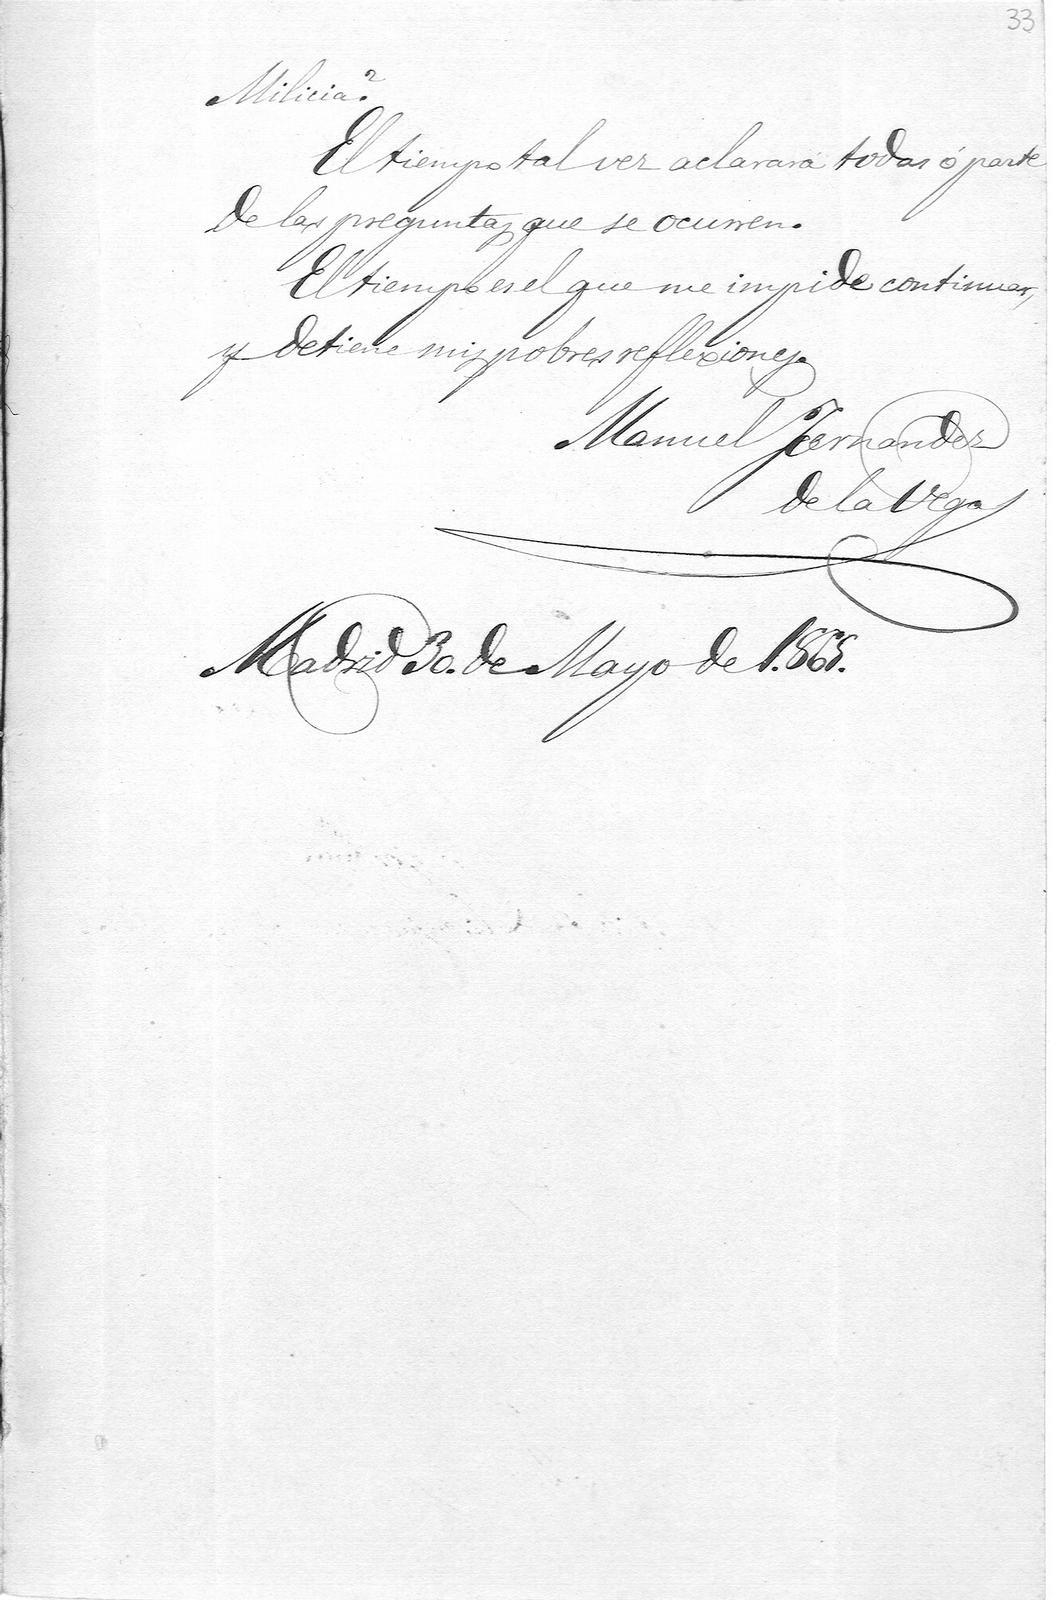 33
Milicia?
El tiempo tal vez aclarará todas ó parte
de las preguntas que se ocurren.
El tiempo es el que me impide continuar,
y detiene mis pobres reflexiones.
Manuel Fernandez
de la Vega
Madrid 30. de Mayo de